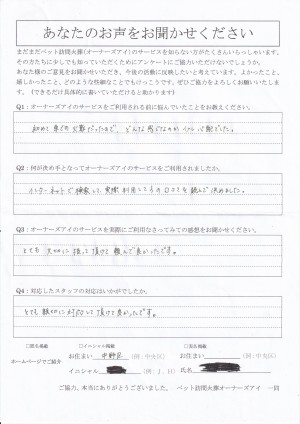 あなたのお声をお聞かせください
まだまだペット訪問火葬(オーナーズアイ)のサービスを知らない方がたくさんいらっしゃいます。
その方たちに少しでも知っていただくためにアンケートにご協力いただけないでしょうか。
あなた様のご意見をお聞かせいただき、今後の活動に反映したいと考えています。よかったこと、
嬉しかったこと、どのような些細なことでもけっこうです。ぜひご協力をよろしくお願いいたします。
(できるだけ具体的に書いていただけると助かります)
Q1：オーナーズアイのサービスをご利用される前に悩んでいたことをお教えください。
初めて
Q2：何が決め手となってオーナーズアイのサービスをご利用されましたか。
インターネットで検索して実際利用してる方の口コミを読んで決めました。
Q3：オーナーズアイのサービスを実際にご利用なさってみての感想をお聞かせください。
とても大切に扱って頂けて頼んで良かったです。
Q4：対応したスタッフの対応はいかがでしたか。
とても親切に対応して頂けて良かったです。
□匿名掲載 □イニシャル掲載 □実名掲載
ホームページでご紹介
お住まい 中野区 (例:中央区) お住まい (例:中央区)
イニシャル (例:J．H) 氏名
ご協力、本当にありがとうございました。 ペット訪問火葬オーナーズアイ 一同